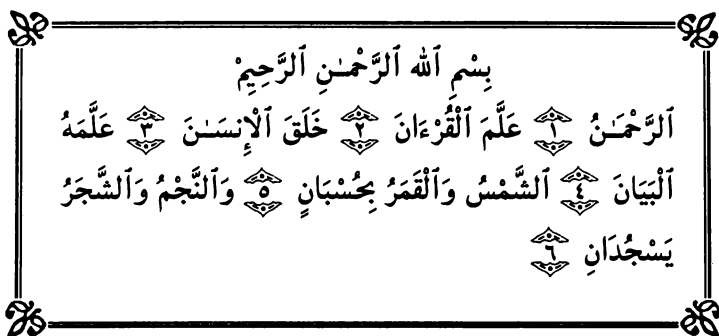 بِسْمِ ٱلله ٱلرَّحْمَـٰنِ ٱلرَّحِيمِْ
ٱلرَّحْمَـٰنُ ١ عَلَّمَ ٱلْقُرْءَانَ ٢ خَلَقَ ٱلْإِنسَـٰنَ ٣ عَلَّمَهُ
ٱلْبَيَانَ ٤ ٱلشَّمْسُ وَٱلْقَمَرُ بِحُسْبَانٍ ٥ وَٱلنَّجْمُ وَٱلشَّجَرُ
يَسْجُدَانِ ٦